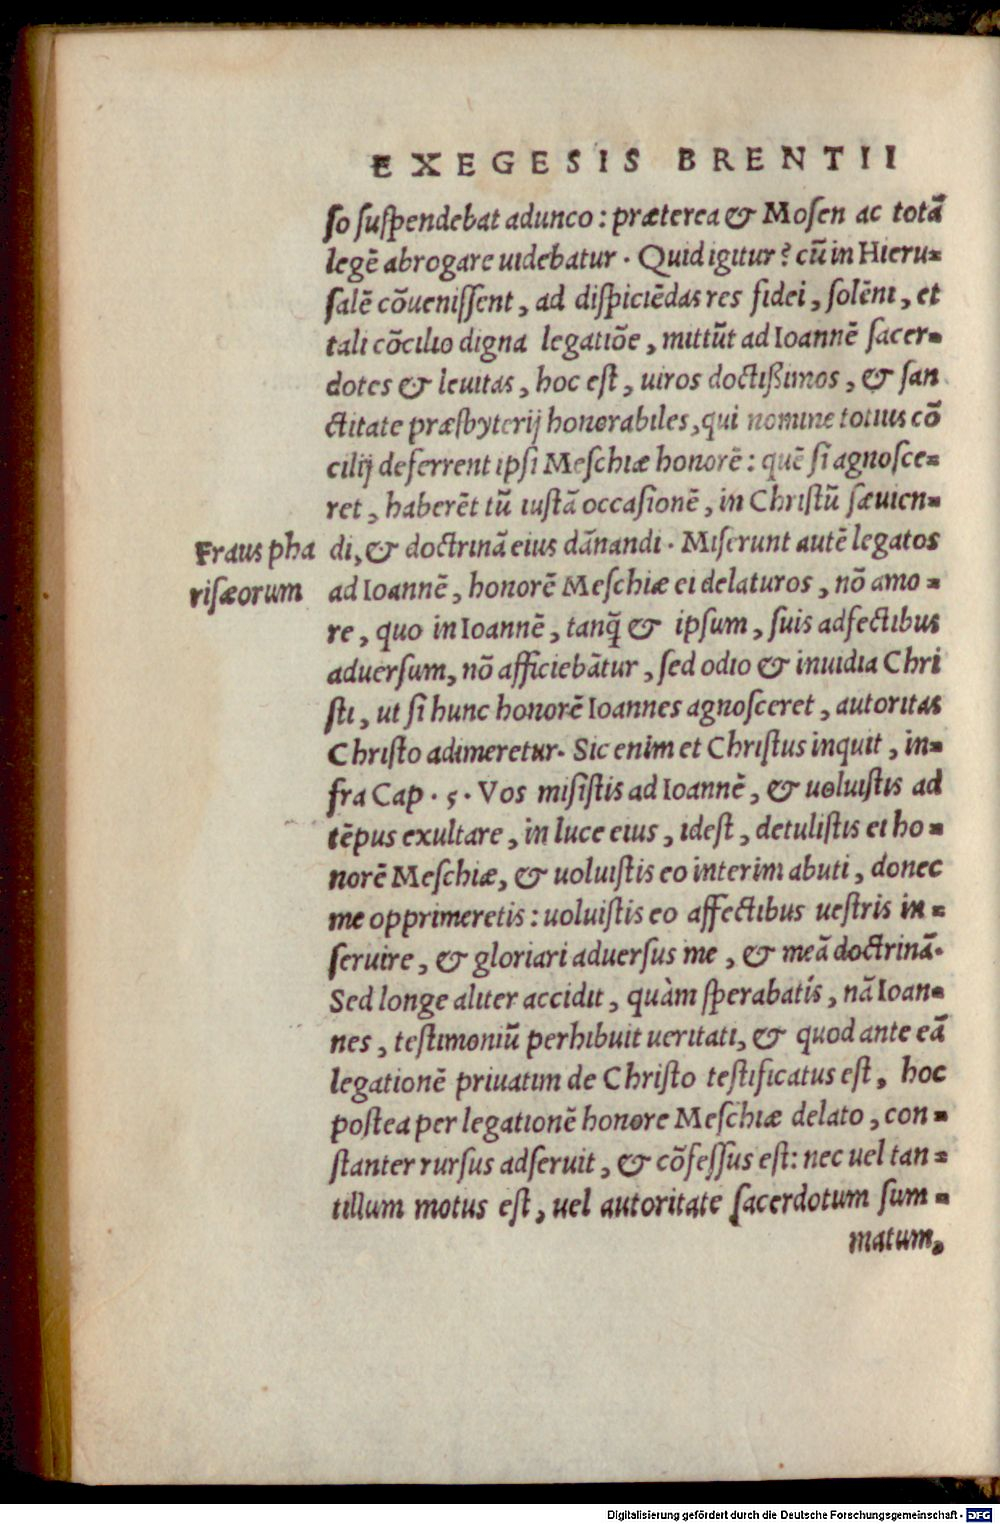 EXEGESIS BRENTII
ſo ſuſpendebat adunco : præterea & Moſen ac totã
legẽ abrogare uidebatur . Quid igitur? cũ in Hieru-
ſalẽ cõueniſſent, ad diſpiciẽdas res fidei, ſolẽni, et
tali cõcilio digna legatiõe, mittũt ad Ioannẽ ſacer-
dotes & leuitas, hoc eſt, uiros doctißimos, & ſan
ctitate præſbyterij honorabiles, qui nomine totius cõ
cilij deferrent ipſi Meſchiæ honorẽ : quẽ ſi agnoſce-
ret, haberẽt tũ iuſtã occaſionẽ, in Chriſtũ ſæuien-
Fraus pha
riſæorum
di, & doctrinã eius dãnandi . Miſerunt autẽ legatos
ad Ioannẽ, honorẽ Meſchiæ ei delaturos, nõ amo-
re, quo in Ioannẽ, tanq̃ & ipſum, ſuis adfectibus
aduerſum, nõ afficiebãtur, ſed odio & inuidia Chri
ſti, ut ſi hunc honorẽ Ioannes agnoſceret, autoritas
Chriſto adimeretur. Sic enim et Chriſtus inquit, in-
fra Cap . 5 . Vos miſiſtis ad Ioannẽ, & uoluiſtis ad
tẽpus exultare, in luce eius, ideſt, detuliſtis ei ho-
norẽ Meſchiæ, & uoluiſtis eo interim abuti, donec
me opprimeretis : uoluiſtis eo affectibus ueſtris in-
ſeruire, & gloriari aduerſus me, & meã doctrinã.
Sed longe aliter accidit, quàm ſperabatis, nã Ioan-
nes, teſtimoniũ perhibuit ueritati, & quod ante eã
legationẽ priuatim de Chriſto teſtificatus eſt, hoc
poſtea per legationẽ honore Meſchiæ delato, con-
ſtanter rurſus adſeruit, & cõfeſſus eſt: nec uel tan-
tillum motus eſt, uel autoritate ſacerdotum ſum-
matum,
Digitalisierung gefördert durch die Deutsche Forschungsgemeinschaft - DFG